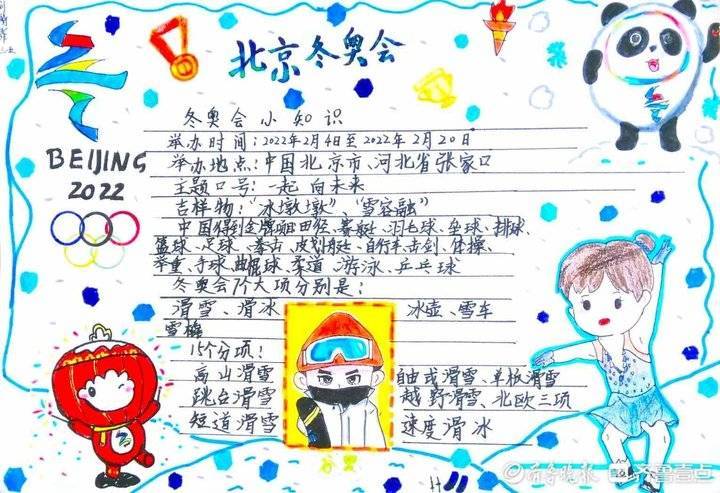 北京冬奥会
BEIJING
2022
冬奥会小知识
举办时间:2022年2月4日至2022年2月20日
举办地点:中国北京市、河北省张家口
主题口号:一起向未来
吉祥物:“冰墩墩”“雪容融”
中国得到金牌项目田径、赛艇、羽毛球、垒球、排球、
篮球、足球、拳击、皮划艇、自行车击剑、体操、
举重、手球、曲棍球、柔道、游泳、乒乓球
冬奥会7个大项分别是:
滑雪、滑冰 冰壶、雪车
雪橇
15个分项!
高山滑雪 自由式滑雪、单板滑雪
跳台滑雪 越野滑雪、北欧三项
短道滑雪 速度滑冰
齐鲁晚报 齐鲁壹点